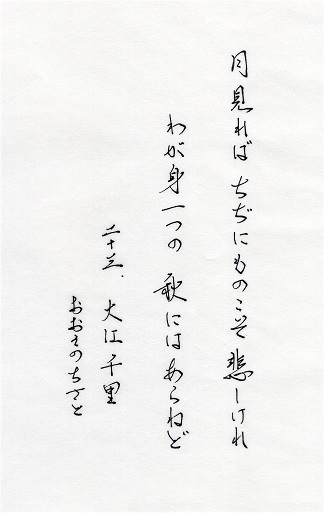 月見れば ちぢにものこそ 悲しけれ
わが身一つの 秋にはあらねど
二十三、大江千里
おおえのちさと